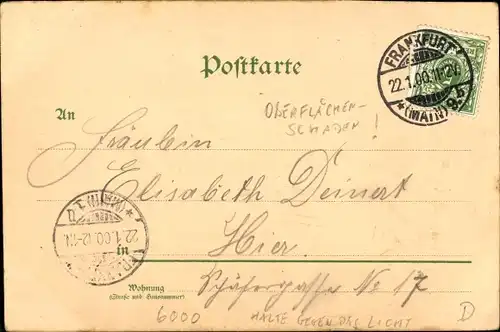 FRANKFURT
22.1.00.11-12V.
* (MAIN) 9.5
Postkarte
OBERFLÄCHEN-
SCHADEN!
An
Fräulein
Elisabeth Deinert
Hier.
in
Schäfergasse No 17
Wohnung
(Straße und Hausnummer)
22.1.00.
6000
HALTE GEGEN DAS LICHT
D